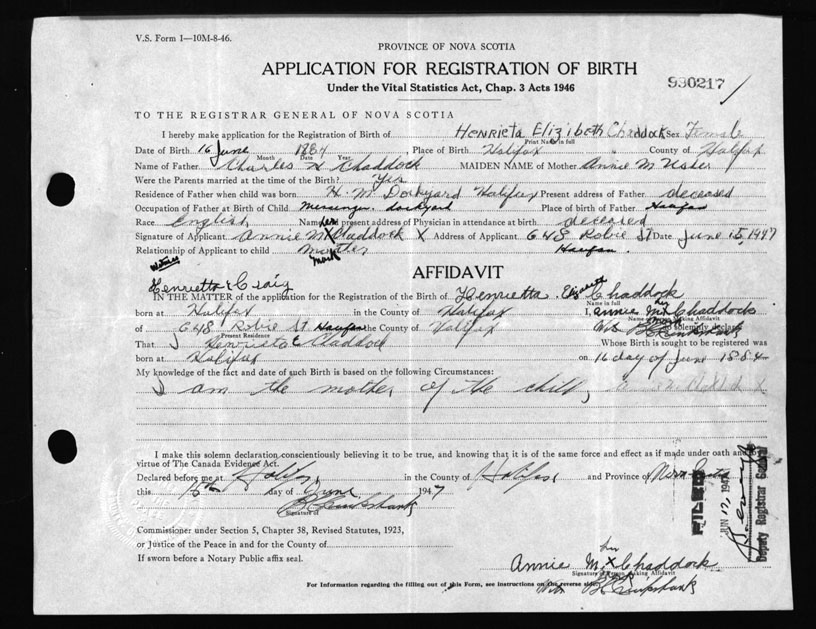 V.S. Form 1—10M-8-46.
PROVINCE OF NOVA SCOTIA
APPLICATION FOR REGISTRATION OF BIRTH
Under the Vital Statistics Act, Chap. 3 Acts 1946
990217
TO THE REGISTRAR GENERAL OF NOVA SCOTIA
I hereby make application for the Registration of Birth of Henrieta Elizibeth Chaddock Sex Female
Print Name in full
Date of Birth 16 June 1884 Place of Birth Halifax County of Halifax
Month Date Year
Name of Father Charles Chaddock MAIDEN NAME of Mother Annie M
Were the Parents married at the time of Birth? Yes
Residence of Father when child was born H. M Dockyard Halifax Present address of Father deceased
Occupation of Father at Birth of Child Messenger dockyard Place of birth of Father
Race English Name and present address of Physician in attendance at birth deceased
Signature of Applicant Annie M X Chaddock X Address of Applicant 648 Robie St Date June 15, 1947
Relationship of Applicant to child mother mark
witness
Henrietta E Craig
AFFIDAVIT
IN THE MATTER of the application for the Registration of the Birth of Henrietta Chaddock
Name in full
born at Halifax in the County of Halifax I, Annie M. X Chaddock
Name of Person Making Affidavit
of 648 Robie St the County of Halifax solemnly declare
Present Residence
That Henrieta E Chaddock Whose Birth is sought to be registered was
born at Halifax on 16 day of June 1884
My knowledge of the fact and date of such Birth is based on the following Circumstances:
I am the mother of the child,
I make this solemn declaration conscientiously believing it to be true, and knowing that it is of the same force and effect as if made under oath and by
virtue of The Canada Evidence Act.
Declared before me at Halifax in the County of Halifax and Province of Nova Scotia
this 15th day of June 1947
Signature of
Commissioner under Section 5, Chapter 38, Revised Statutes, 1923,
or Justice of the Peace in and for the County of
If sworn before a Notary Public affix seal.
FILED
JUN 17, 1947
Deputy Registrar General
her
Annie M. X Chaddock
Signature of Person Making Affidavit
For Information regarding the filling out of this Form, see instructions on the reverse side.